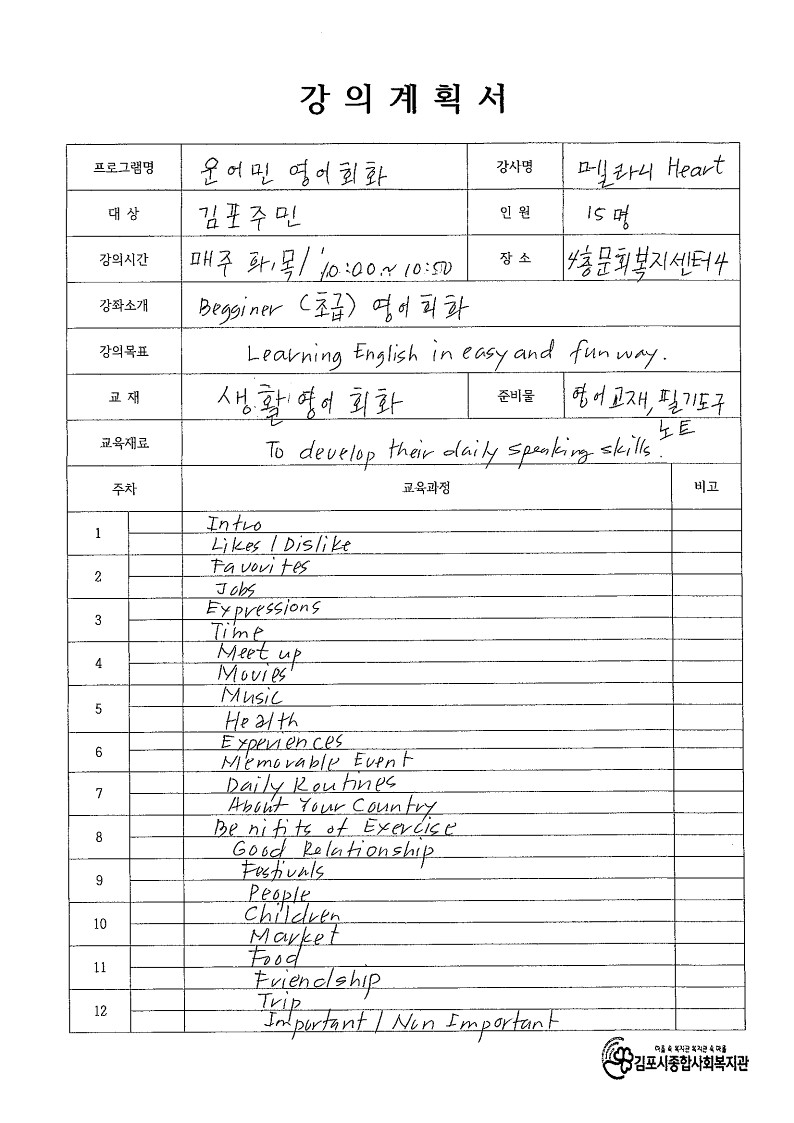 강 의 계 획 서
프로그램명 운어민 영어회화 강사명 메릴라니 Heart
대 상 김포주민 인 원 15명
강의시간 매주 화,목/ 10:00~10:50 장 소 4층문화복지센터4
강좌소개 Begginer (초급) 영어회화
강의목표 Learning English in easy and fun way.
교 재 생활영어 회화 준비물 영어교재, 필기도구
노트
교육재료 To develop their daily speaking skills.
주차 교육과정 비고
1 Intro
Likes / Dislike
2 Favorites
Jobs
3 Expressions
Time
4 Meet up
Movies
5 Music
Health
6 Experiences
Memorable Event
7 Daily Routines
About Your Country
8 Benifits of Exercise
Good Relationship
9 Festivals
People
10 Children
Market
11 Food
Friendship
12 Trip
Important / Non Important
마음 속 복지관 복지관 속 마음
김포시종합사회복지관